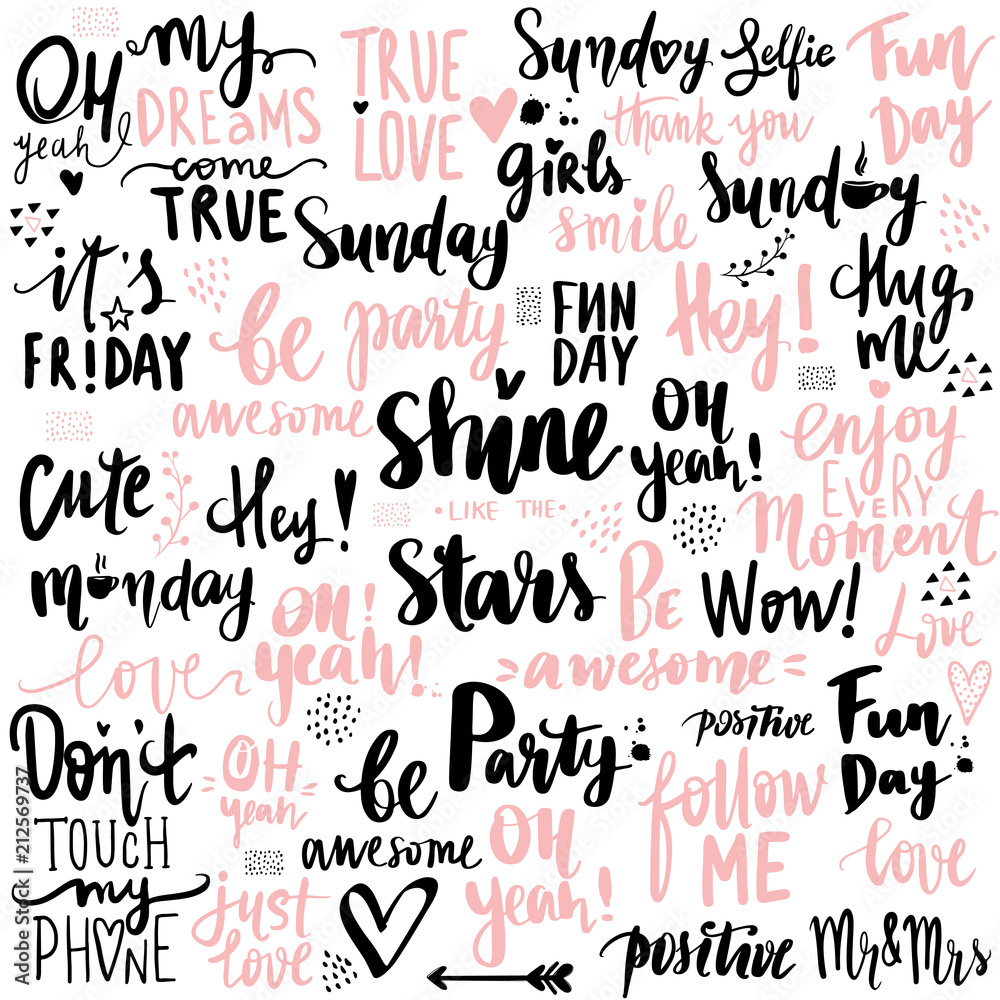 OH
yeah
my
DREAMS
come
TRUE
TRUE
LOVE
Sunday Selfie
thank you
Fun
DAY
girls
Sunday
Sunday
smile
it's
FR!DAY
be party
FUN
DAY
Hey!
Hug
me
awesome
Shine
LIKE THE
Stars
OH
yeah!
enjoy
EVERY
Moment
Cute
Hey!
monday
OH!
yeah!
Be
awesome
Wow!
Love
love
Don't
TOUCH
my
PHONE
OH
yeah
be
awesome
Party
positive
Fun
Day
follow
ME
OH
yeah!
love
just
love
positive
Mr&Mrs
Adobe Stock | #212569737